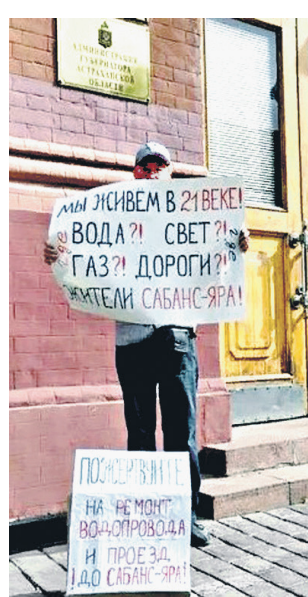 АДМИНИСТРАЦИЯ
ГУБЕРНАТОРА
АСТРАХАНСКОЙ
ОБЛАСТИ
МЫ ЖИВЁМ В 21 ВЕКЕ!
где ВОДА?! СВЕТ?! где
ГАЗ?! ДОРОГИ?!
ЖИТЕЛИ САБАНС-ЯРА!
ПОЖЕРТВУЙТЕ
НА РЕМОНТ
ВОДОПРОВОДА
И ПРОЕЗД
!ДО САБАНС-ЯРА!